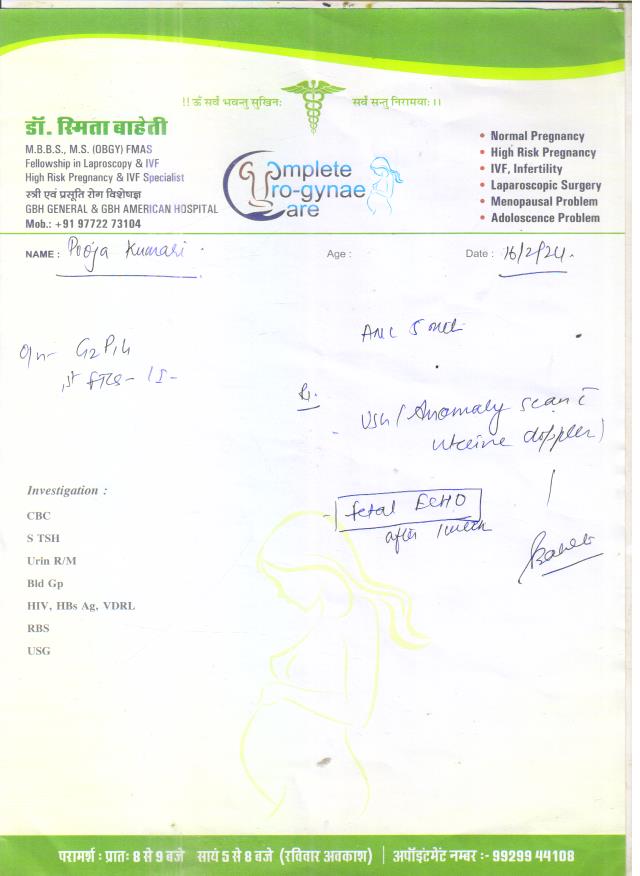 !! ॐ सर्वे भवन्तु सुखिनः सर्वे सन्तु निरामयाः !!
डॉ. स्मिता बाहेती
M.B.B.S., M.S. (OBGY) FMAS
Fellowship in Laproscopy & IVF
High Risk Pregnancy & IVF Specialist
स्त्री एवं प्रसूति रोग विशेषज्ञ
GBH GENERAL & GBH AMERICAN HOSPITAL
Mob.: +91 97722 73104
Complete
Uro-gynae
Care
• Normal Pregnancy
• High Risk Pregnancy
• IVF, Infertility
• Laparoscopic Surgery
• Menopausal Problem
• Adoloscence Problem
NAME : Pooja Kumari Age : Date : 16/2/24.
ANC 5
G2P1L1
USG (Anomaly scan c̄
uterine doppler)
- fetal ECHO
after 1 week
Investigation :
CBC
S TSH
Urin R/M
Bld Gp
HIV, HBs Ag, VDRL
RBS
USG
परामर्श : प्रातः 8 से 9 बजे सायं 5 से 8 बजे (रविवार अवकाश) | अपॉइंटमेंट नम्बर :- 99299 44108